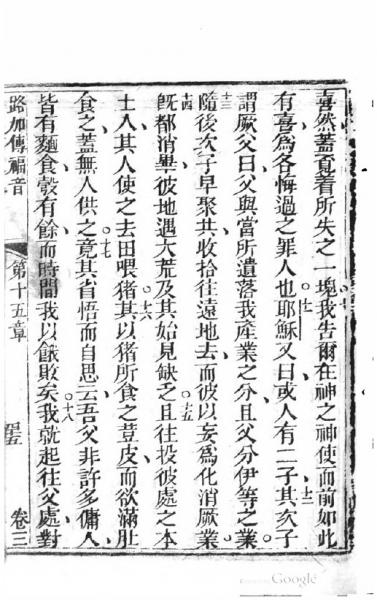 喜然蓋覔着所失之一塊我告爾在神之神使而前如此
有喜爲各悔過之罪人也耶穌又曰或人有二子其次子
謂厥父曰父與當所遺落我產業之分且父分伊等之業
隨後次子早聚共收拾往遠地去而彼以妄爲化消厥業
旣都消畢彼地遇大荒及其始見缺乏且往投彼處之本
土人其人使之去田喂猪其以猪所食之荳皮而欲滿肚
食之蓋無人供之竟其省悟而自思云吾父非許多傭人
皆有麵食穀有餘而時間我以餓敗矣我就起往父處對
路加傳福音 第十五章 卷三
Google